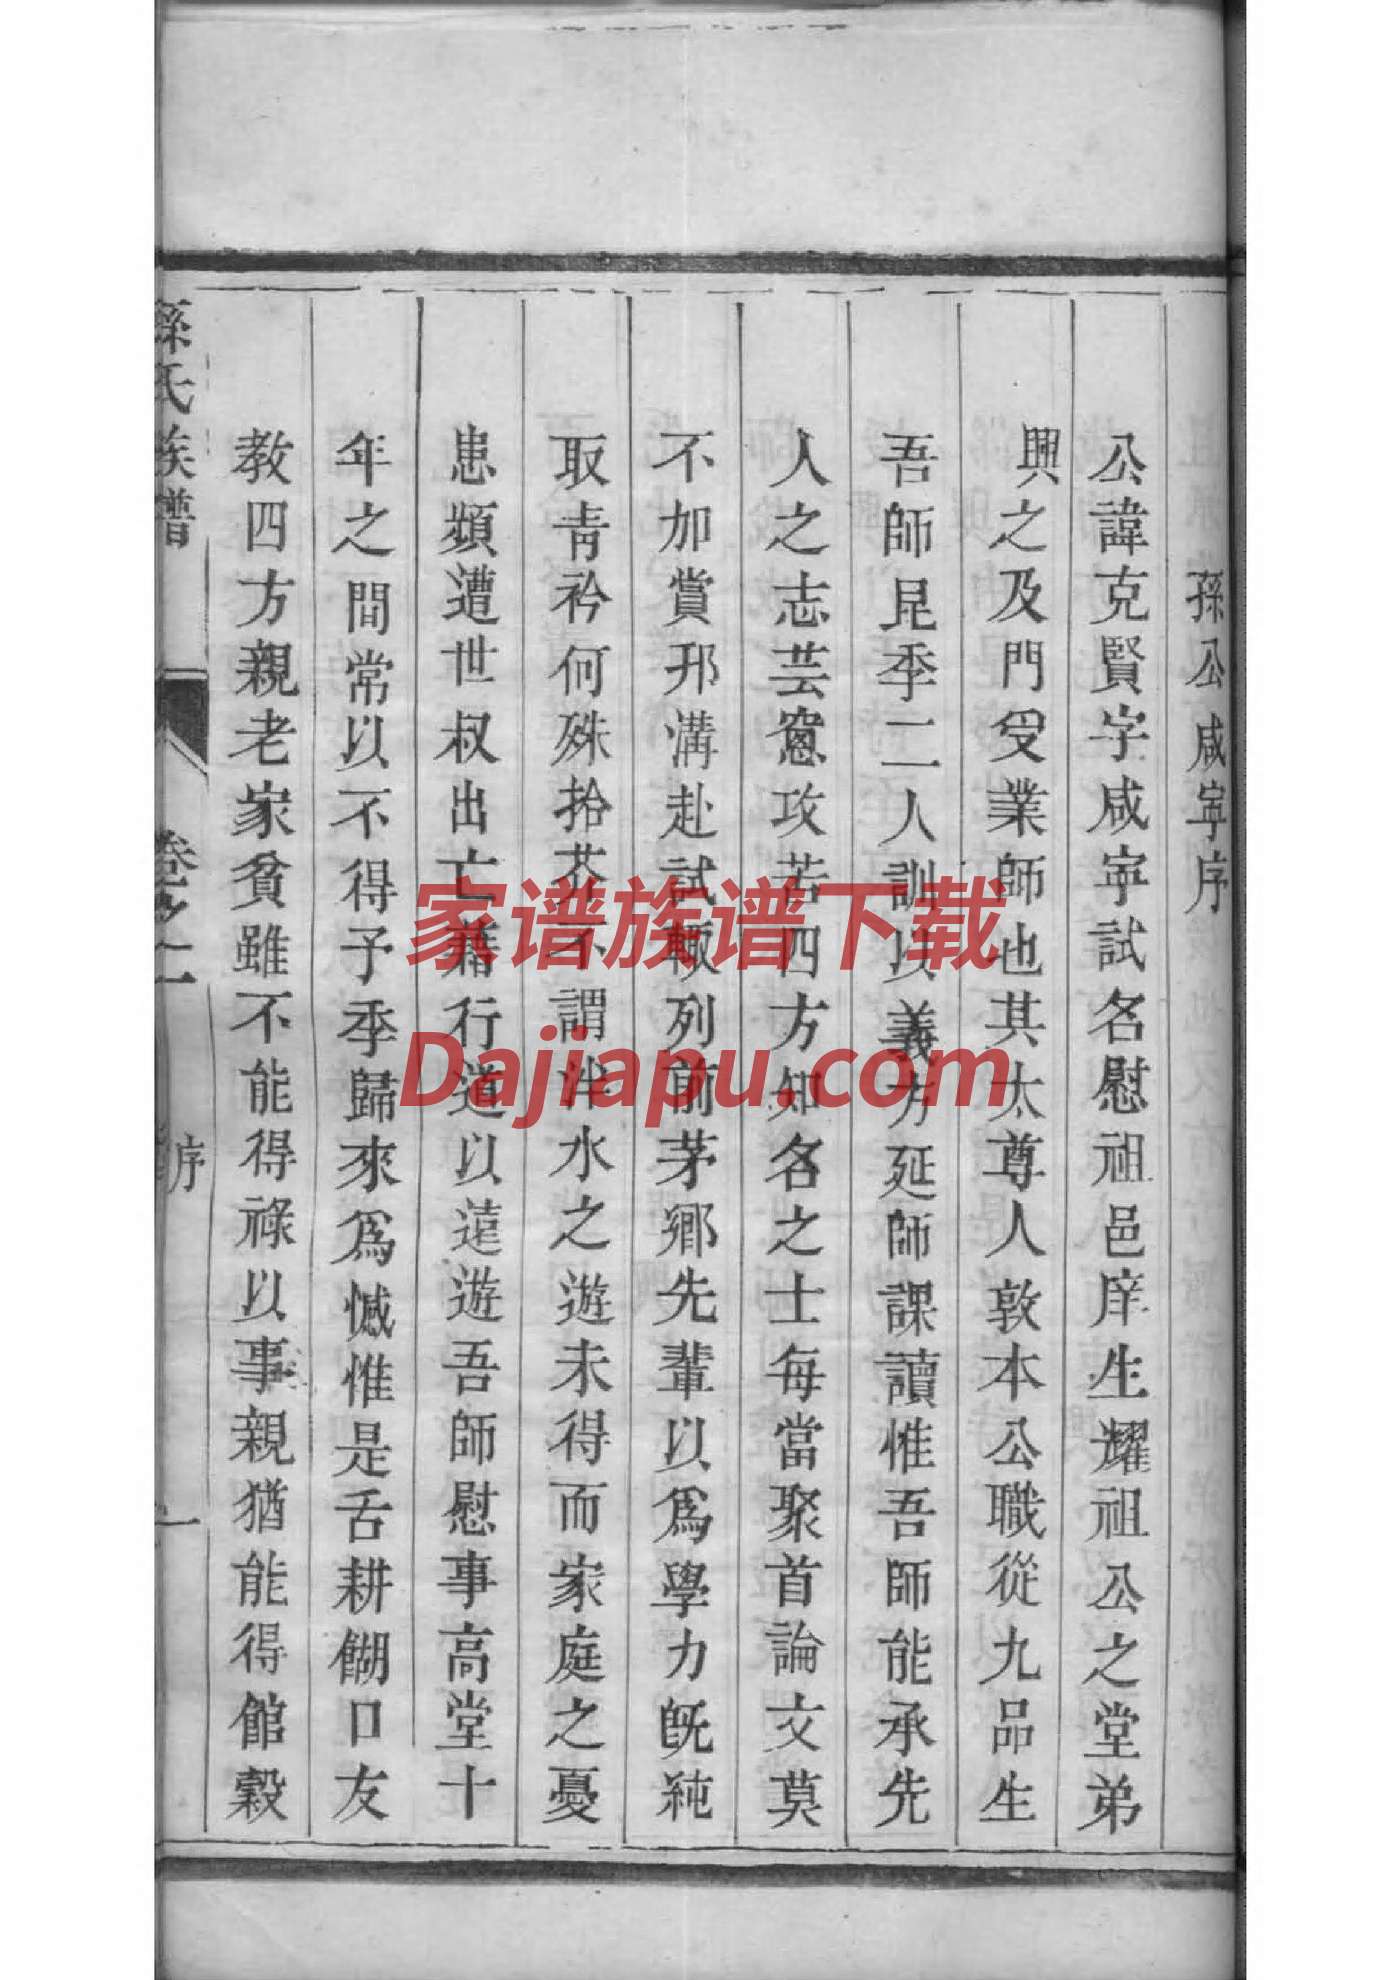 孫公咸寧序
公諱克賢字咸寧試名慰祖邑庠生耀祖公之堂弟
興之及門受業師也其太尊人敦本公職從九品生
吾師昆季二人訓以義方延師課讀惟吾師能承先
人之志芸窗攻苦四方知名之士每當聚首論文莫
不加賞邗溝赴試輒列前茅鄉先輩以為學力旣純
取青衿何殊拾芥不謂泮水之遊未得而家庭之憂
患頻遭世叔出亡藉行道以遠遊吾師慰事高堂十
年之間常以不得予季歸來為憾惟是舌耕餬口友
教四方親老家貧雖不能得祿以事親猶能得館穀
孫氏族譜
卷之一
序
一
家谱族谱下载
Dajiapu.com